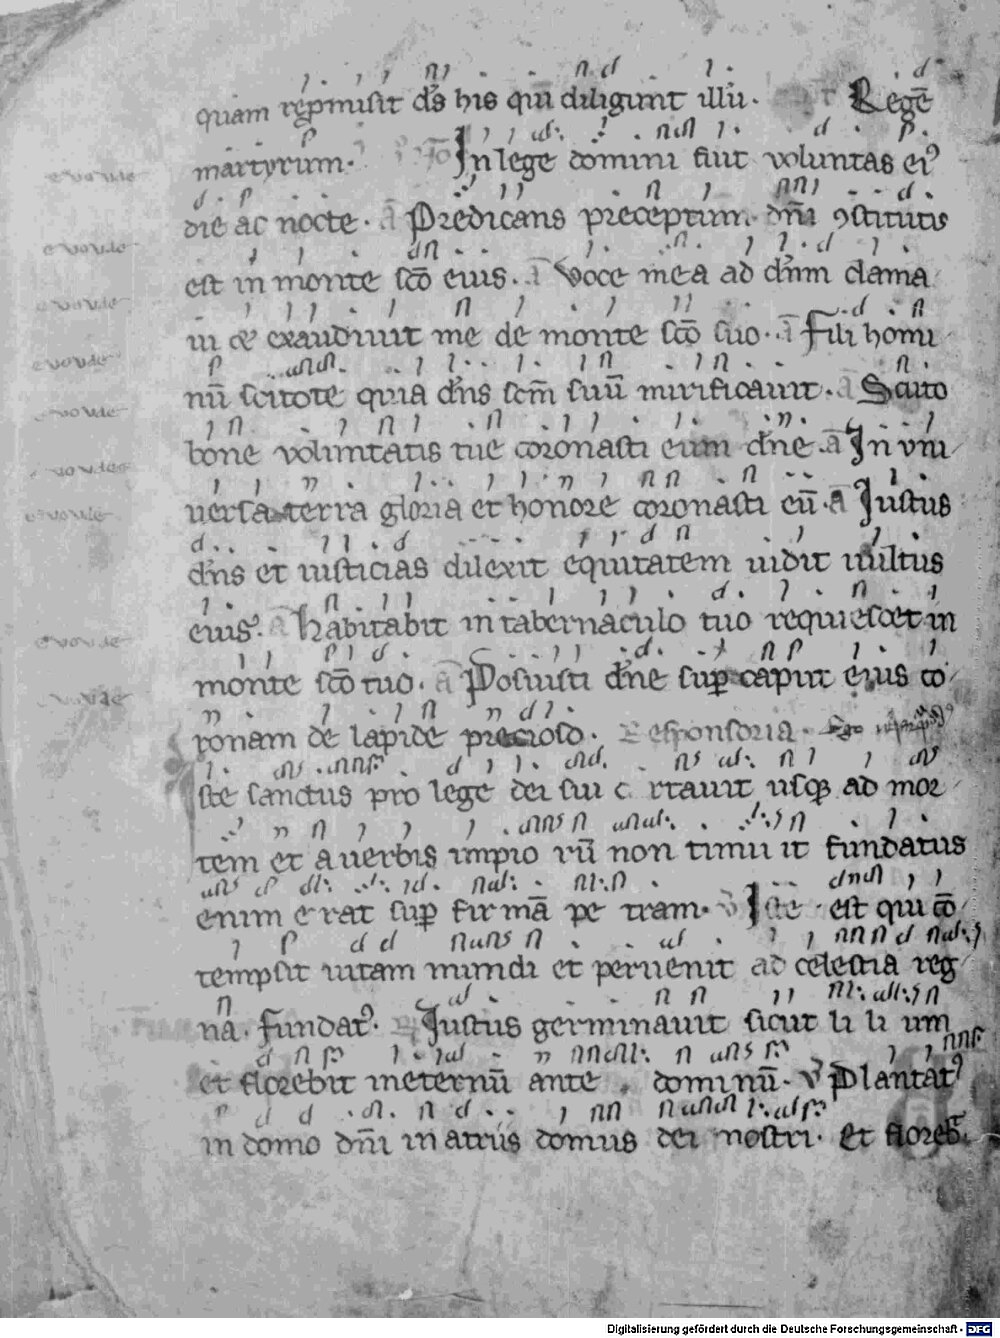 quam rep̱misit ds̄ his qui diligunt illū. Regē
martyrum. In lege domini fuit voluntas ei⁹
die ac nocte. ā Predicans preceptum dñi ꝯstitutus
est in monte scō eius. ā Voce mea ad dn̄m clama
ui & exaudiuit me de monte scō suo. ā Fili homi
nū scitote quia dn̄s scm̄ suū mirificauit. ā Scuto
bone voluntatis tue coronasti eum dn̄e. ā In vni
uersa terra gloria et honore coronasti eū. ā Justus
dn̄s et iusticias dilexit equitatem uidit uultus
eius. ā Habitabit in tabernaculo tuo requiescet in
monte scō tuo. ā Posuisti dn̄e suꝑ caput eius co
ronam de lapide precioso. Responsoria.
ste sanctus pro lege dei sui c rtauit usqꝫ ad mor
tem et a uerbis impio rū non timu it fundatus
enim e rat suꝑ fir mā pe tram. v̄ Iste est qui cō
tempsit uitam mundi et peruenit ad celestia reg
na. fundat᷒. Justus germinauit sicut li li um
et florebit in eternū ante dominū. v̄ Plantat⁹
in domo dn̄i in atriis domus dei nostri. Et floreb̄.
euouae
euouae
euouae
euouae
euouae
euouae
euouae
euouae
euouae
Digitalisierung gefördert durch die Deutsche Forschungsgemeinschaft - DFG